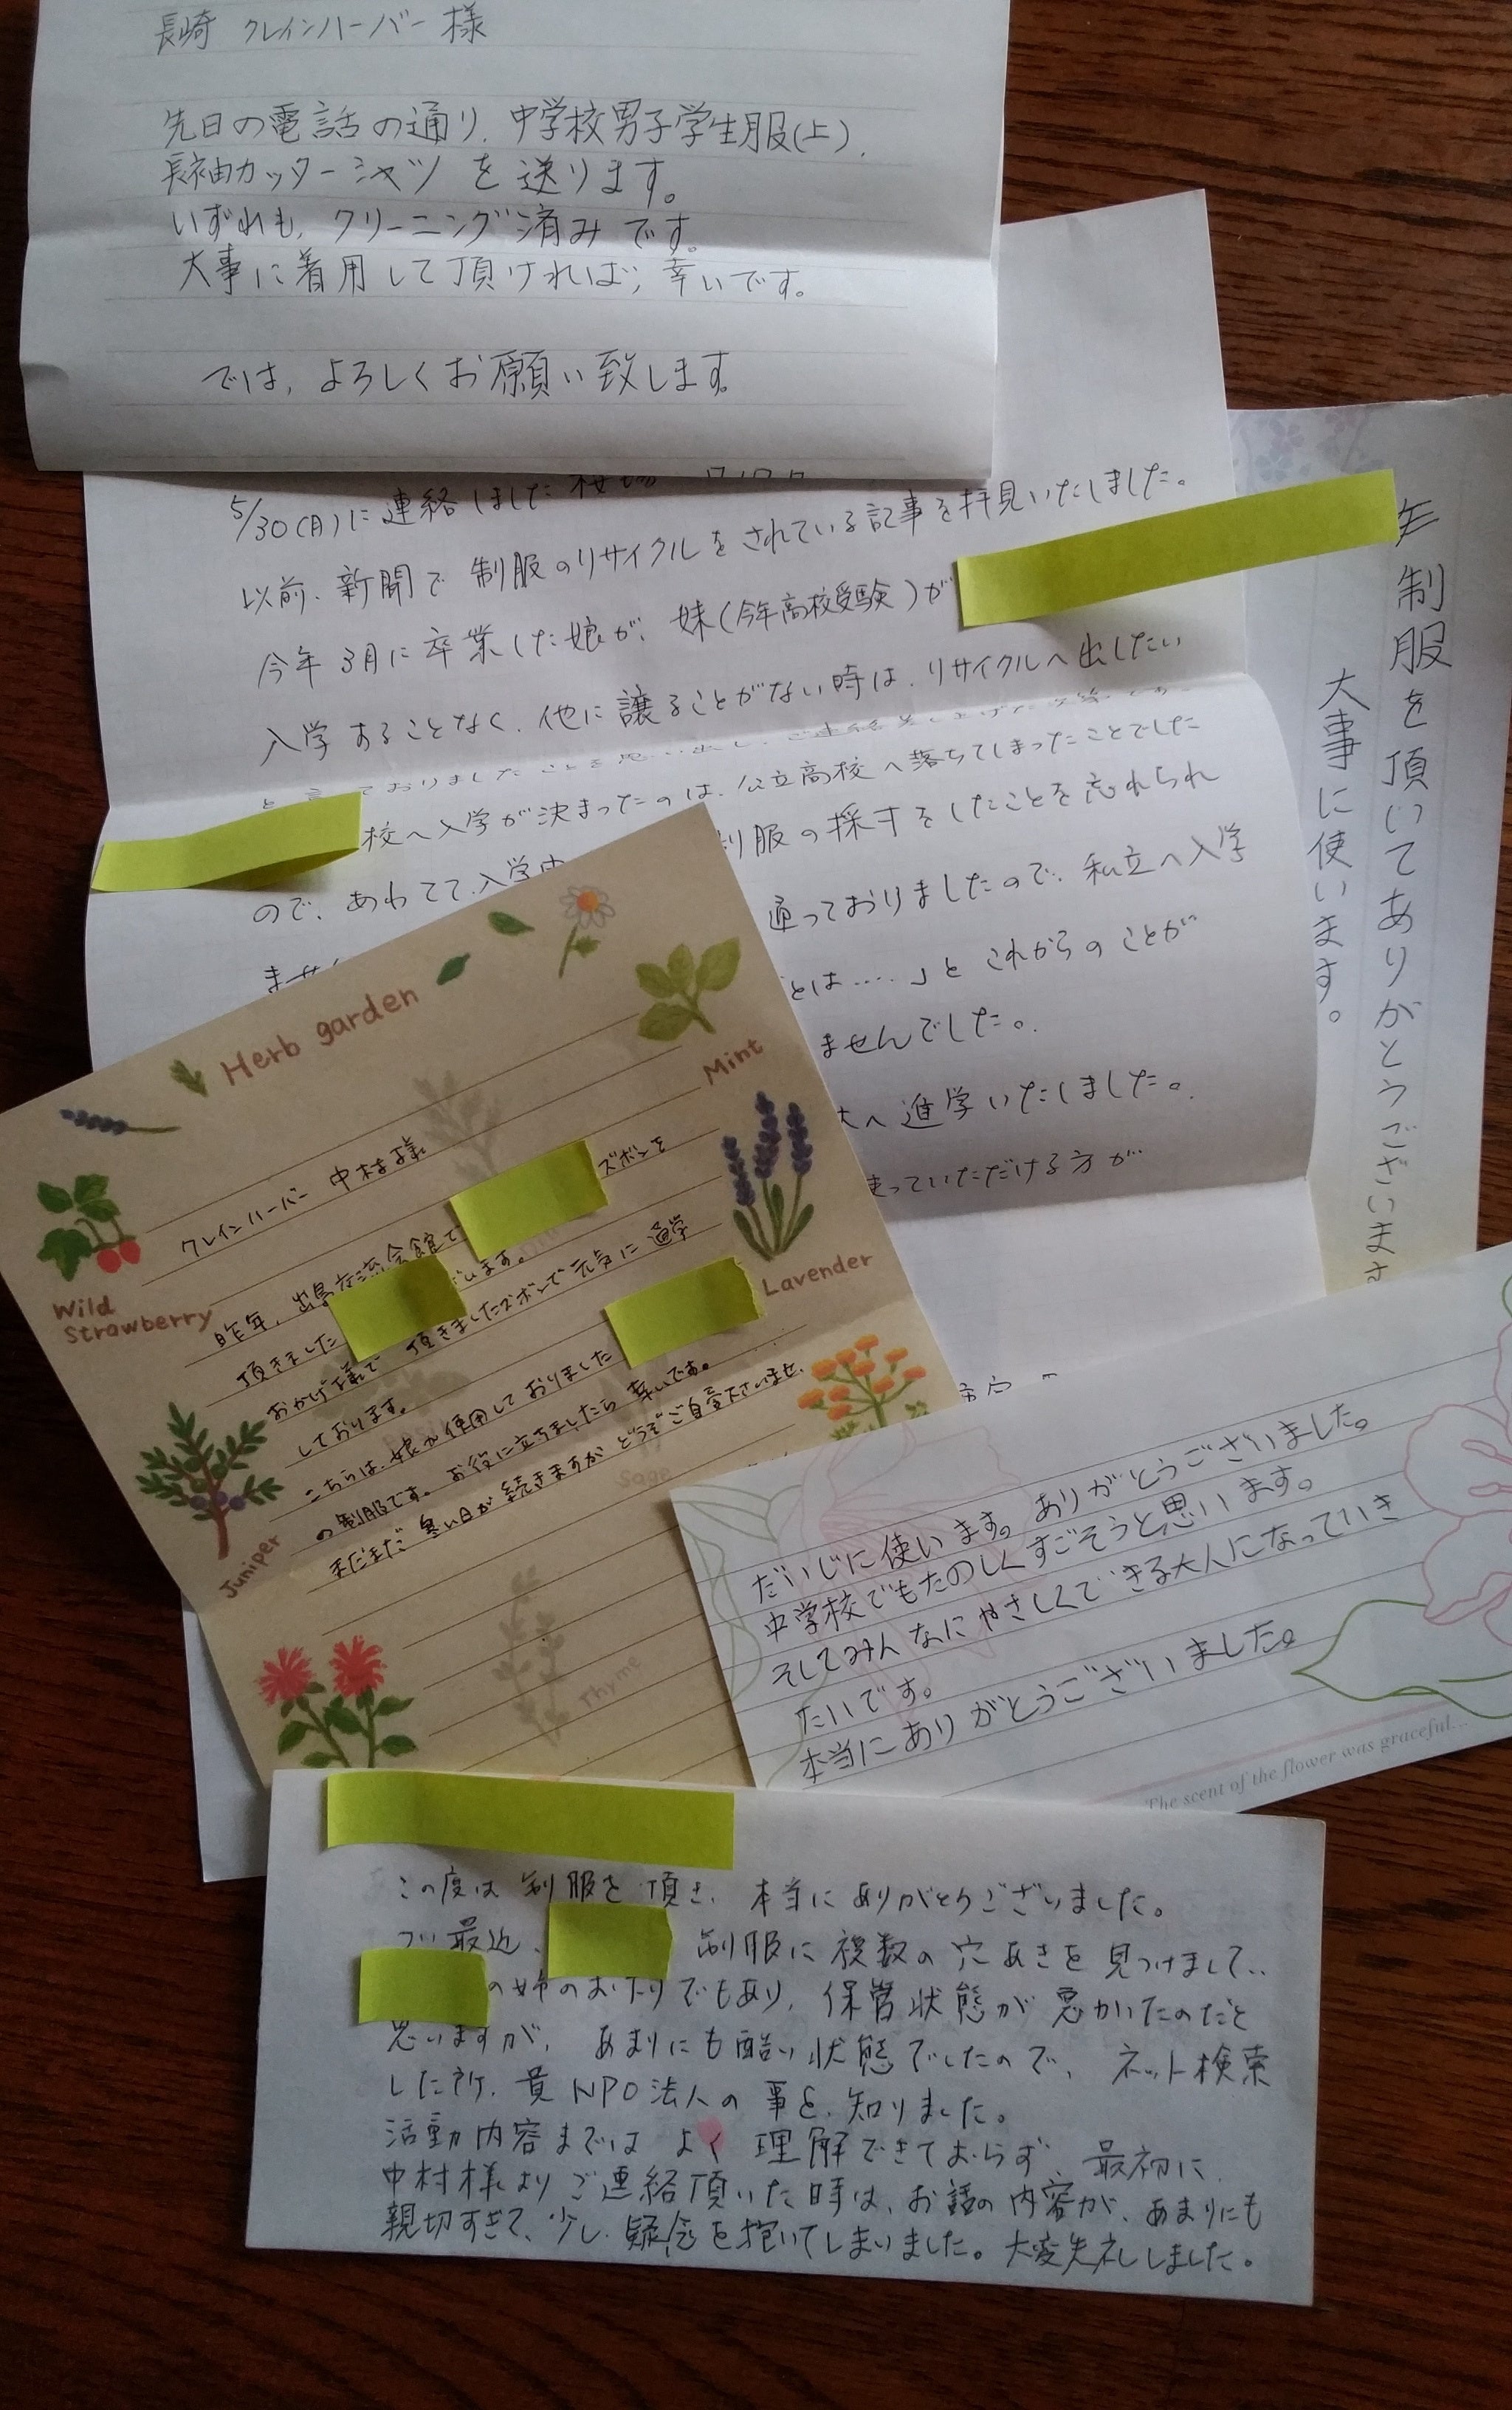 長崎 クレインハーバー 様
先日の電話の通り、中学校男子学生服(上)、
長袖カッターシャツ を 送ります。
いずれも、クリーニング済みです。
大事に着用して頂ければ、幸いです。
では、よろしくお願い致します。
5/30(月)に連絡しました
以前、新聞で 制服のリサイクルをされている記事を拝見いたしました。
今年3月に卒業した娘が、妹(今年高校受験)が
入学することなく、他に譲ることがない時は、リサイクルへ出したい
校へ入学が決まったのは、公立高校へ落ちてしまったことでした
ので、あわてて、入学 制服の採寸をしたことを忘れられ
ませ 通っておりましたので、私立へ入学
とは‥‥」と これからのことが
ませんでした。
大へ進学いたしました。
使っていただける方が
制服を頂いてありがとうございます
大事に使います。
Herb garden
Mint
クレインハーバー 中村様
昨年、出島交流会館で ズボンを
頂きました ざいます。
おかげ様で 頂きましたズボンで元気に通学
しております。
こちらは、娘が使用しておりました
の制服です。お役に立ちましたら幸いです。
まだまだ寒い日が続きますが どうぞご自愛下さいませ、
Wild
Strawberry
Lavender
Juniper
Sage
Thyme
だいじに使います。ありがとうございました。
中学校でもたのしくすごそうと思います。
そしてみんなにやさしくできる大人になっていき
たいです。
本当にありがとうございました。
The scent of the flower was graceful...
この度は 制服を頂き、本当にありがとうございました。
つい最近、 制服に複数の穴あきを見つけまして‥
の姉のおさがりでもあり、保管状態が悪かったのだと
思いますが、あまりにも酷い状態でしたので、ネット検索
した所、貴NPO法人の事を知りました。
活動内容まではよく理解できておらず、最初に、
中村様よりご連絡頂いた時は、お話の内容が、あまりにも
親切すぎて、少し疑念を抱いてしまいました。大変失礼しました。